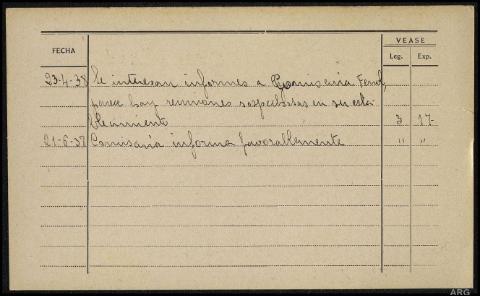 VEASE
FECHA Leg. Exp.
23-4-38 Se interesan informes a Comisaria Ferrol,
pues hay reuniones sospechosas en su esta-
blecimiento 3 17-
21-6-38 Comisaría informa favorablemente " "
ARG